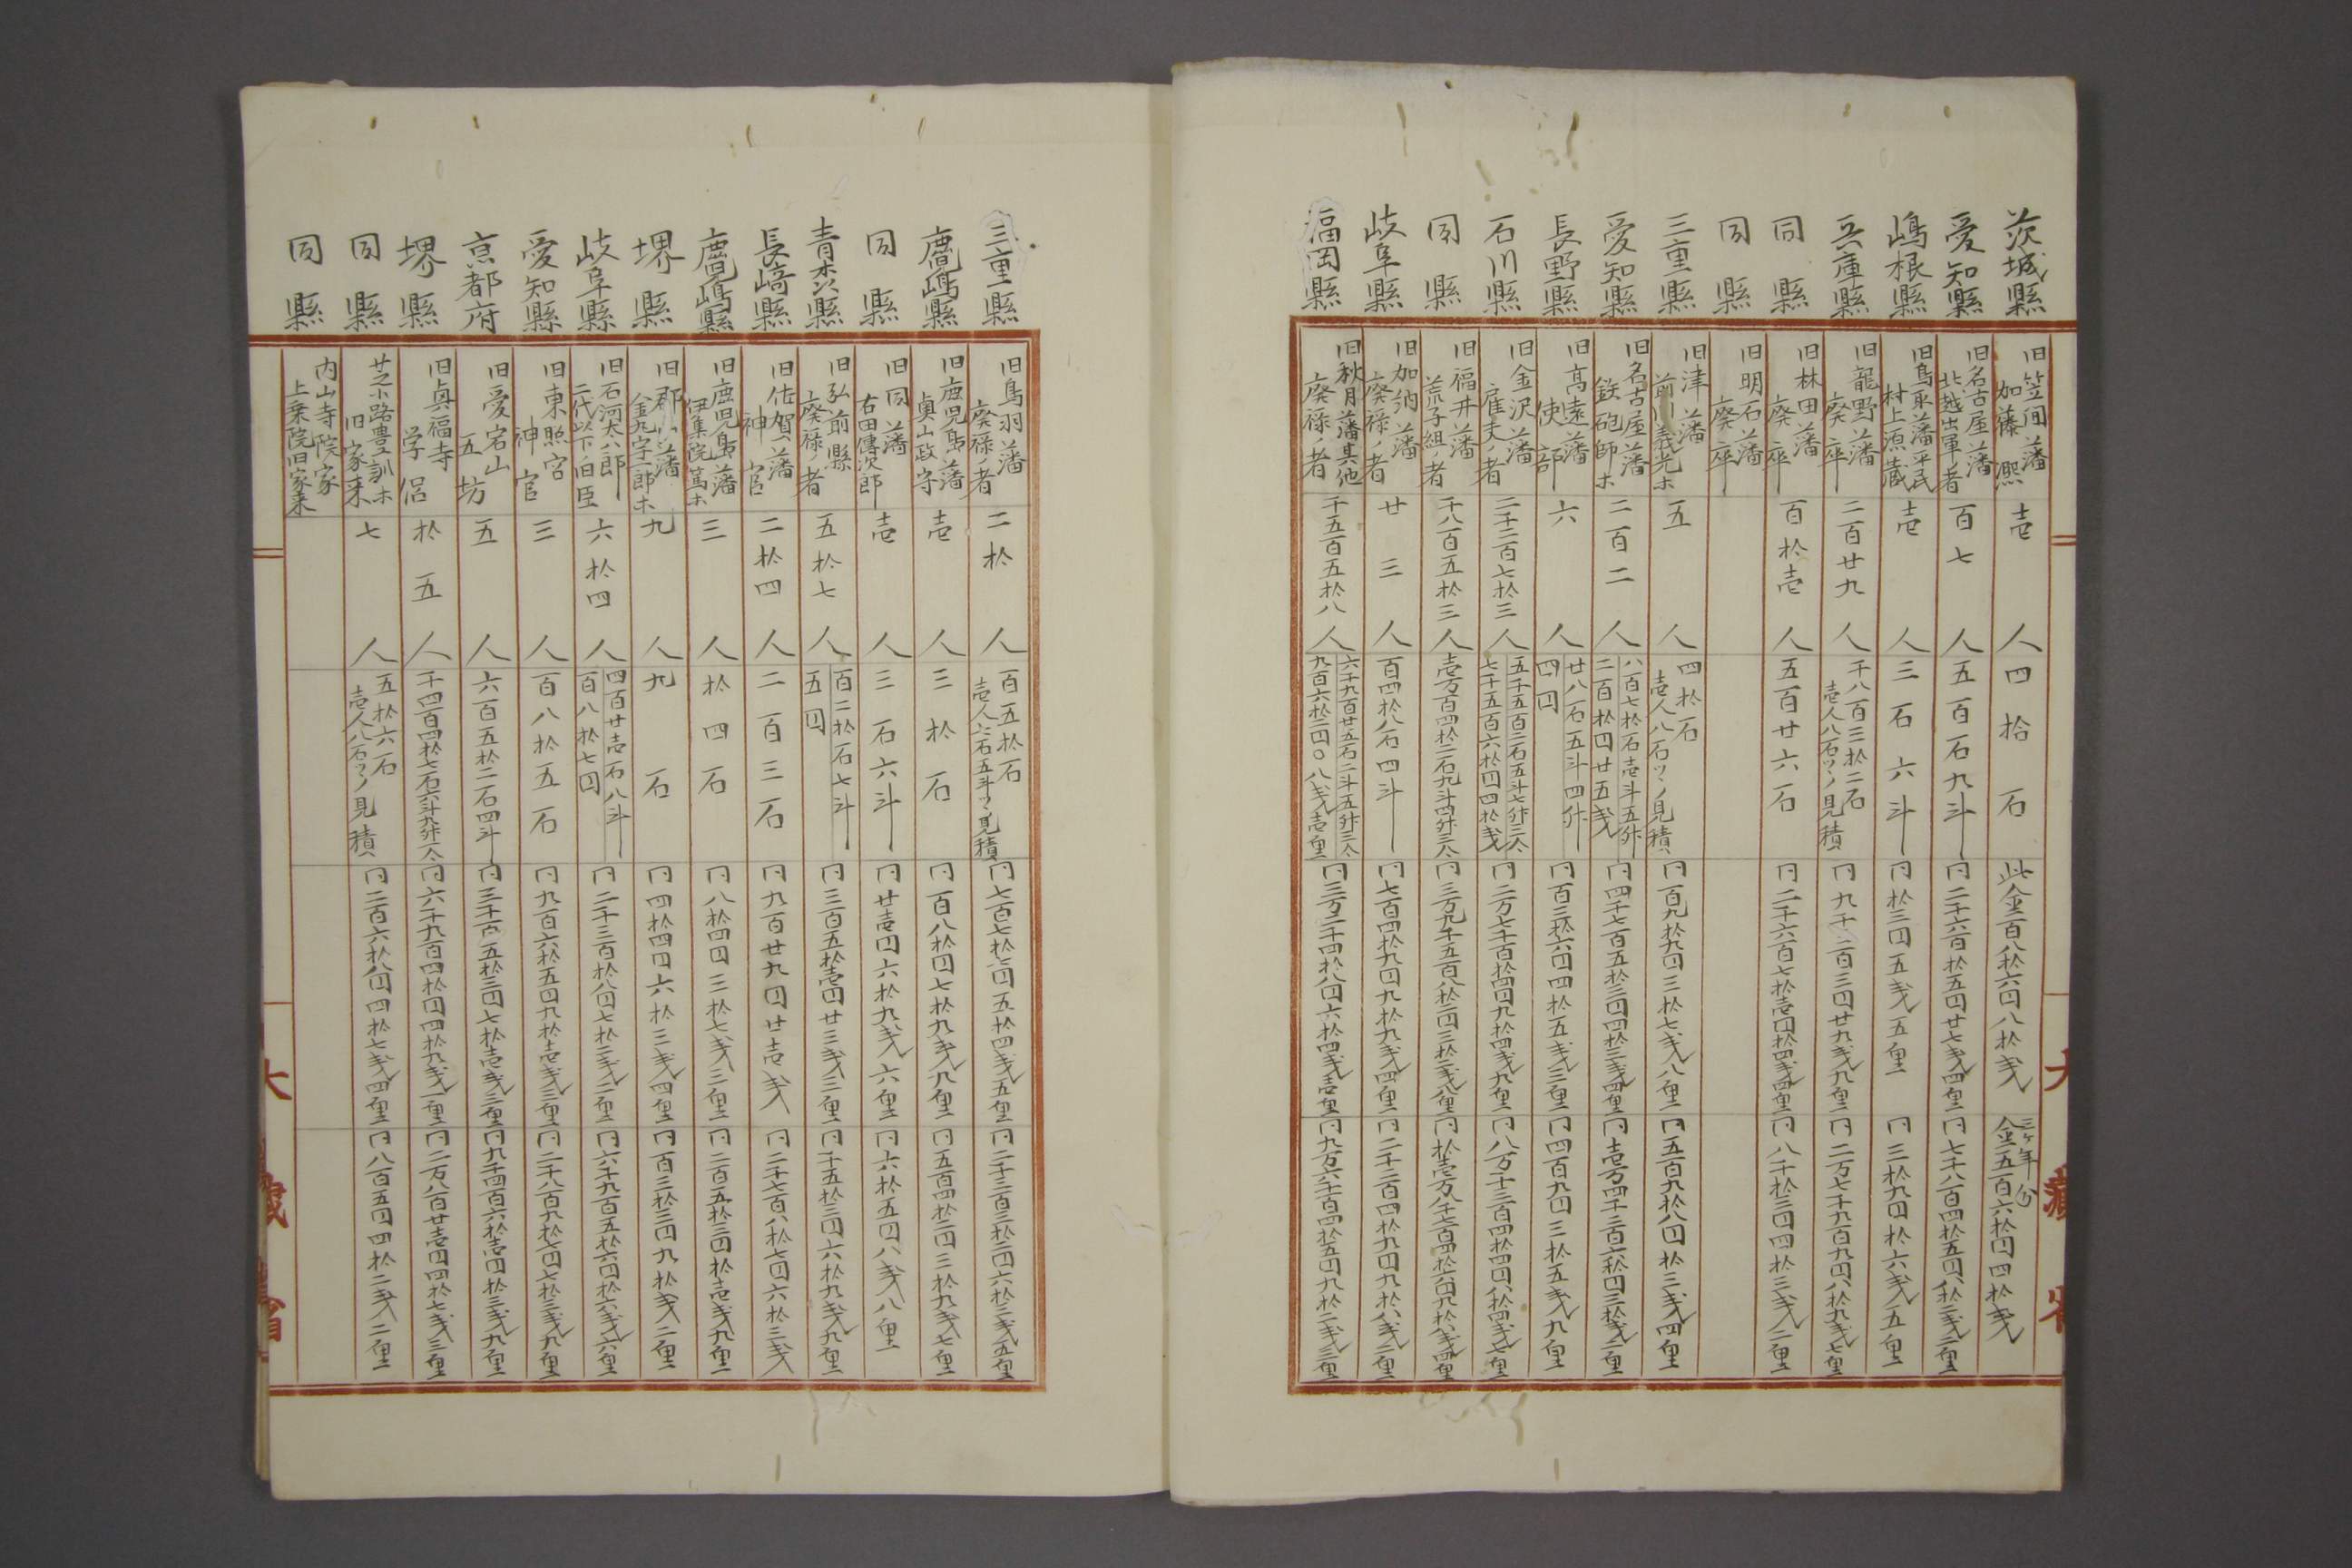 茨城縣 旧笠間藩 加藤熈 壱人 四拾石 此金百八拾六円八拾戔 三ケ年分 金五百六拾円四拾戔
愛知縣 旧名古屋藩 北越出軍ノ者 百七人 五百石九斗 円二千六百拾五円廿七戔四厘 円七千八百四拾五円八拾二戔二厘
嶋根縣 旧鳥取藩平民 村上源蔵 壱人 三石六斗 円拾三円五戔五厘 円三拾九円拾六戔五厘
兵庫縣 旧龍野藩 癈卒 二百廿九人 千八百三拾二石 壱人八石ツヽノ見積 円九千三百三円廿九戔九厘 円二万七千九百九円八拾九戔七厘
同縣 旧林田藩 癈卒 百拾壱人 五百廿六石 円二千六百七拾壱円拾四戔四厘 円八千拾三円四拾三戔二厘
同縣 旧明石藩 癈卒
三重縣 旧津藩 前川義光ホ 五人 四拾石 壱人八石ツヽノ見積 円百九拾九円三拾七戔八厘 円五百九拾八円拾三戔四厘
愛知縣 旧名古屋藩 鉄砲師ホ 二百二人 八百七拾石壱斗五升 二百拾円廿五戔 円四千七百五拾三円四拾三戔四厘 円壱万四千二百六拾円三拾戔二厘
長野縣 旧高遠藩 使部 六人 廿八石五斗四升 四円 円百三拾六円四拾五戔三厘 円四百九円三拾五戔九厘
石川縣 旧金沢藩 雇夫ノ者 二千二百七拾三人 五千五百二石五斗七升三合 七千五百六拾円四拾戔 円二万七千百拾四円九拾四戔九厘 円八万千三百四拾四円八拾四戔七厘
同縣 旧福井藩 荒子組ノ者 千八百五拾三人 壱万百四拾二石九斗四升三合 円三万九千五百八拾二円三拾二戔八厘 円拾壱万八千七百四拾六円九拾八戔四厘
岐阜縣 旧加納藩 癈禄ノ者 廿三人 百四拾八石四斗 円七百四拾九円九拾九戔四厘 円二千二百四拾九円九拾八戔二厘
福岡縣 旧秋月藩其他 癈禄ノ者 千五百五拾八人 六千九百廿五石二斗五升三合 九百六拾二円〇八戔壱厘 円三万二千四拾八円六拾四戔壱厘 円九万六千百四拾五円九拾二戔三厘
三重縣 旧鳥羽藩 癈禄ノ者 二拾人 百五拾石 壱人六石五斗ツヽ見積 円七百七拾円五拾四戔五厘 円二千三百三拾二円六拾三戔五厘
鹿嶋縣 旧鹿児島藩 眞山政守 壱人 三拾石 円百八拾円七拾九戔九厘 円五百四拾二円三拾九戔七厘
同縣 旧同藩 右田傳次郎 壱人 三石六斗 円廿壱円六拾九戔六厘 円六拾五円八戔八厘
青森縣 旧弘前縣 癈禄ノ者 五拾七人 百二拾石七斗 五円 円三百五拾壱円廿三戔三厘 円千五拾三円六拾九戔九厘
長崎縣 旧佐賀藩 神官 二拾四人 二百三石 円九百廿九円廿壱戔 円二千七百八拾七円六拾三戔
鹿嶋縣 旧鹿児島藩 伊集院篤ホ 三人 拾四石 円八拾四円三拾七戔三厘 円二百五拾三円拾壱戔九厘
堺縣 旧郡山藩 金丸字一郎ホ 九人 九石 円四拾四円六拾三戔四厘 円百三拾三円九拾戔二厘
岐阜縣 旧石河太八郎 二代以下旧臣 六拾四人 四百廿壱石八斗 百八拾七円 円二千三百拾八円七拾二戔二厘 円六千九百五拾六円拾六戔六厘
愛知縣 旧東照宮 神官 三人 百八拾五石 円九百六拾五円九拾壱戔三厘 円二千八百九拾七円七拾三戔九厘
亰都府 旧愛宕山 五坊 五人 六百五拾二石四斗 円三千百五拾三円七拾壱戔三厘 円九千四百六拾壱円拾三戔九厘
堺縣 旧眞福寺 学侶 拾五人 千四百四拾七石六斗九升二合 円六千九百四拾円四拾九戔一厘 円二万八百廿壱円四拾七戔三厘
同縣 芝小路豊訓ホ 旧家来 七人 五拾六石 壱人八石ツヽノ見積 円二百六拾八円四拾七戔四厘 円八百五円四拾二戔二厘
同縣 内山寺院家 上乗院旧家来
大藏省